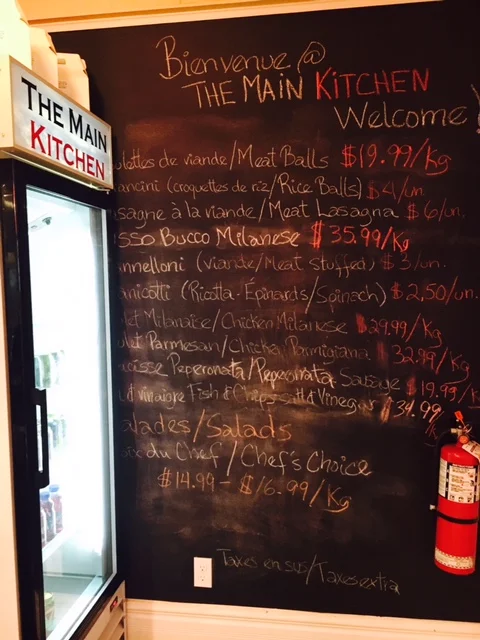 Bienvenue @
THE MAIN KITCHEN
Welcome
THE MAIN
KITCHEN
lettes de viande/Meat Balls $19.99/Kg
ancini (croquettes de riz/Rice Balls) $4/un.
sagne à la viande/Meat Lasagna $6/un.
sso Bucco Milanese $35.99/Kg
nnelloni (viande/Meat stuffed) $3/un.
nicotti (Ricotta-Epinards/Spinach) $2,50/un.
let Milanaise/Chicken Milanese $29.99/Kg
ulet Parmesan/Chicken Parmigiana 32.99/Kg
Peperonata/Peperonata Sausage $19.99/K
vinaigre Fish & Chips salt & Vinegar $34.99
alades/Salads
du Chef/Chef's Choice
$14.99-$16.99/Kg
Taxes en sus/Taxes extra